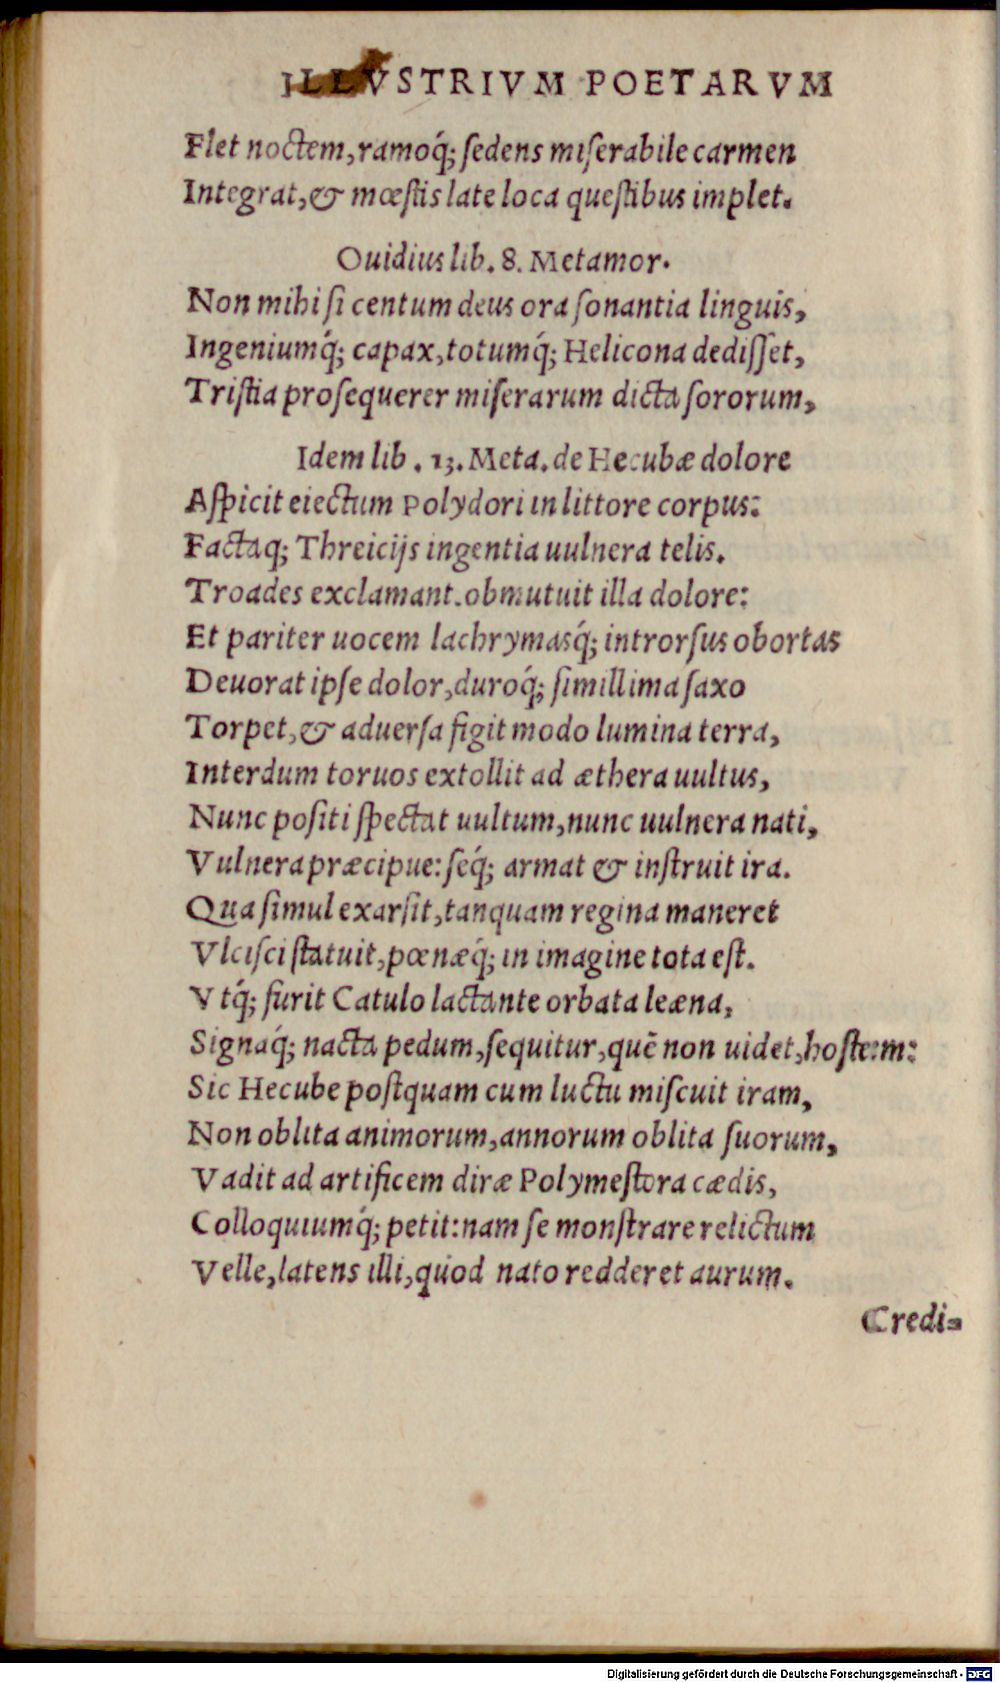 ILLVSTRIVM POETARVM
Flet noctem, ramoq́; ſedens miſerabile carmen
Integrat, & mœſtis late loca queſtibus implet.
Ouidius lib. 8. Metamor.
Non mihi ſi centum deus ora ſonantia linguis,
Ingeniumq́; capax, totumq́; Helicona dediſſet,
Triſtia proſequerer miſerarum dicta ſororum,
Idem lib. 13. Meta. de Hecubæ dolore
Aſpicit eiectum Polydori in littore corpus:
Factaq; Threicijs ingentia uulnera telis.
Troades exclamant. obmutuit illa dolore:
Et pariter uocem lachrymasq́; introrſus obortas
Deuorat ipſe dolor, duroq́; ſimillima ſaxo
Torpet, & aduerſa figit modo lumina terra,
Interdum toruos extollit ad æthera uultus,
Nunc poſiti ſpectat uultum, nunc uulnera nati,
Vulnera præcipue: ſeq́; armat & inſtruit ira.
Qua ſimul exarſit, tanquam regina maneret
Vlciſci ſtatuit, pœnæq́; in imagine tota eſt.
Vtq́; furit Catulo lactante orbata leæna,
Signaq́; nacta pedum, ſequitur, quē non uidet, hoſtem:
Sic Hecube poſtquam cum luctu miſcuit iram,
Non oblita animorum, annorum oblita ſuorum,
Vadit ad artificem diræ Polymeſtora cædis,
Colloquiumq́; petit: nam ſe monſtrare relictum
Velle, latens illi, quod nato redderet aurum.
Credi-
Digitalisierung gefördert durch die Deutsche Forschungsgemeinschaft - DFG